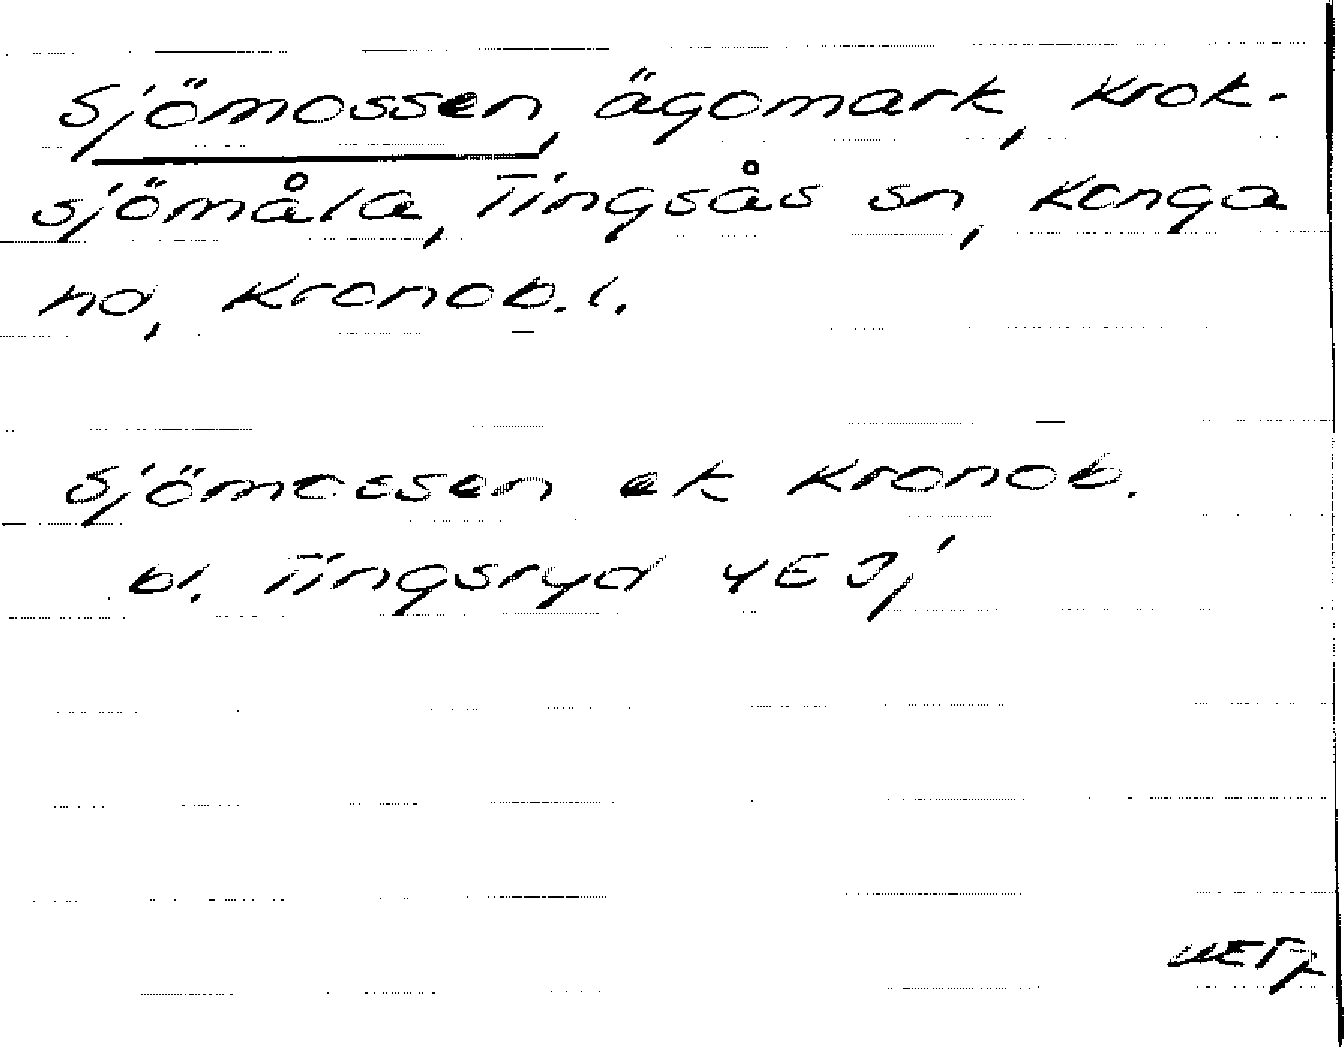 Sjömossen, ägomark, Krok-
sjömåla, Tingsås sn, Konga
hd, Kronob. l.
Sjömossen ek Kronob.
bl. Tingsryd 4E